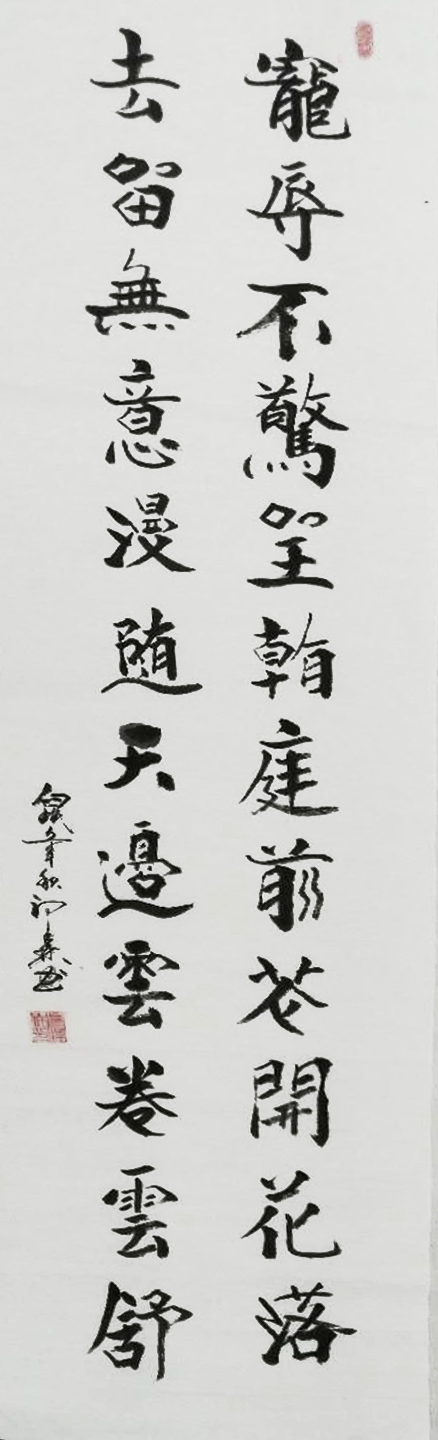 寵辱不驚庭前花開花落
去留無意漫随天邊雲卷雲舒
鼠年秋书